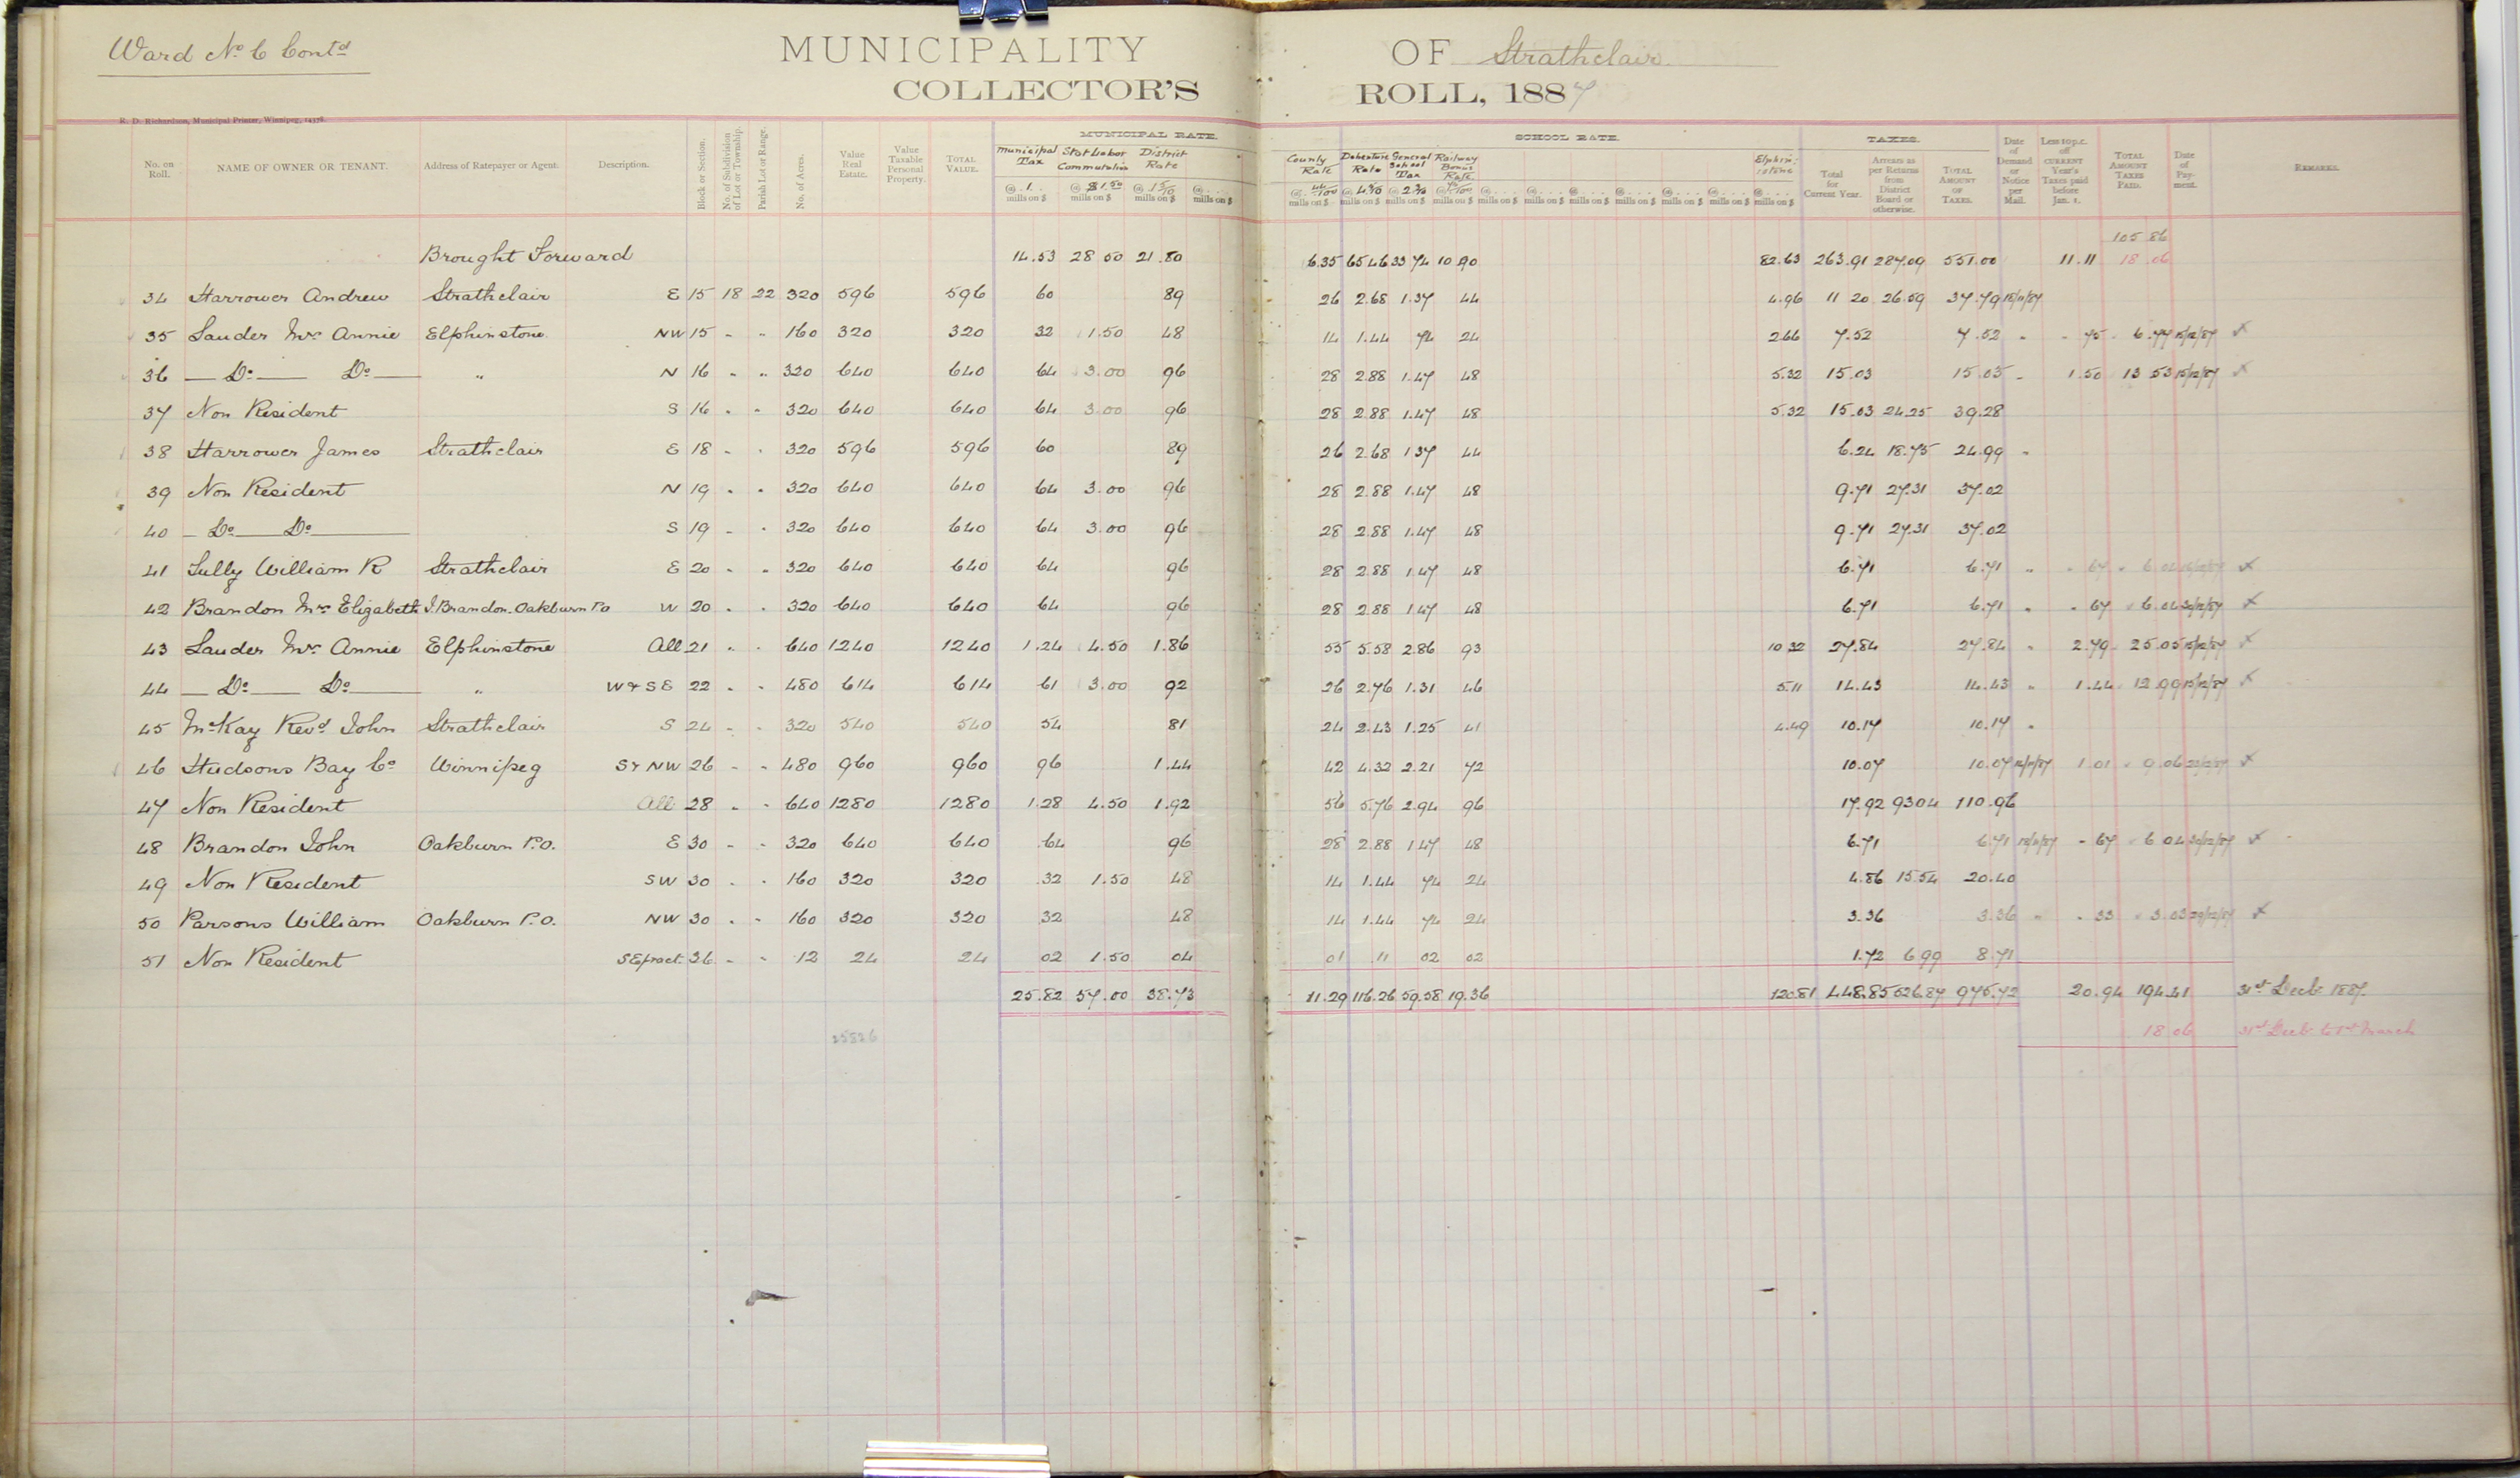 Ward No. 6 Contd
MUNICIPALITY OF Strathclair
COLLECTOR'S ROLL, 1887
R. D. Richardson, Municipal Printer, Winnipeg, 14376.
MUNICIPAL RATE. SCHOOL RATE. TAXES.
No. on Roll. NAME OF OWNER OR TENANT. Address of Ratepayer or Agent. Description. Block or Section. No. of Subdivision of Lot or Township. Parish Lot or Range. No. of Acres. Value Real Estate. Value Taxable Personal Property. TOTAL VALUE. Municipal Tax @ 1 mills on $ Stat Labor Commutation @ $1.50 mills on $ District Rate @ 1 5/10 mills on $ @ mills on $ County Rate @ 44/100 mills on $ Debenture Rate @ 4 5/10 mills on $ General School Tax @ 2 3/10 mills on $ Railway Bonus Rate @ 75/100 mills on $ Elphinstone @ mills on $ Total for Current Year. Arrears as per Returns from District Board or otherwise. TOTAL AMOUNT OF TAXES. Date of Demand or Notice per Mail. Less 10 p.c. off CURRENT Year's Taxes paid before Jan. 1. TOTAL AMOUNT TAXES PAID. Date of Payment. REMARKS.
105 86
Brought Forward 14.53 28 50 21.80 6.35 65.46 33 74 10 90 82.63 263.91 287.09 551.00 11.11 18.06
34 Harrower Andrew Strathclair E 15 18 22 320 596 596 60 89 26 2.68 1.37 44 4.96 11 20 26.59 37.79 18/11/87
35 Lauder Mrs Annie Elphinstone NW 15 " " 160 320 320 32 1.50 48 14 1.44 74 24 2.66 7.52 7.52 " 75 6.77 15/12/87 x
36 — Do — Do — " N 16 " " 320 640 640 64 3.00 96 28 2.88 1.47 48 5.32 15.03 15.03 " 1.50 13 53 15/12/87 x
37 Non Resident S 16 " " 320 640 640 64 3.00 96 28 2.88 1.47 48 5.32 15.03 24.25 39.28
38 Harrower James Strathclair E 18 " " 320 596 596 60 89 26 2.68 1 37 44 6.24 18.75 24.99 "
39 Non Resident N 19 " " 320 640 640 64 3.00 96 28 2.88 1.47 48 9.71 27.31 37.02
40 — Do — Do — S 19 " " 320 640 640 64 3.00 96 28 2.88 1.47 48 9.71 27.31 37.02
41 Tully William R Strathclair E 20 " " 320 640 640 64 96 28 2.88 1.47 48 6.71 6.71 " 67 6.04 x
42 Brandon Mrs Elizabeth J. Brandon. Oakburn Po W 20 " " 320 640 640 64 96 28 2.88 1.47 48 6.71 6.71 " 67 6.04 30/12/87 x
43 Lauder Mrs Annie Elphinstone All 21 " " 640 1240 1240 1.24 4.50 1.86 55 5.58 2.86 93 10 32 27.84 27.84 " 2.79 25.05 15/12/87 x
44 — Do — Do — " W & SE 22 " " 480 614 614 61 3.00 92 26 2.76 1.31 46 5.11 14.43 14.43 " 1.44 12.99 15/12/87 x
45 McKay Revd John Strathclair S 24 " " 320 540 540 54 81 24 2.43 1.25 41 4.49 10.17 10.17 "
46 Hudsons Bay Co Winnipeg S & NW 26 " " 480 960 960 96 1.44 42 4.32 2.21 72 10.07 10.07 1.01 9.06 x
47 Non Resident All 28 " " 640 1280 1280 1.28 4.50 1.92 56 5.76 2.94 96 17.92 93 04 110.96
48 Brandon John Oakburn P.O. E 30 " " 320 640 640 64 96 28 2.88 1 47 48 6.71 6.71 18/11/87 67 6 04 30/12/87 x
49 Non Resident SW 30 " " 160 320 320 32 1.50 48 14 1.44 74 24 4.86 15.54 20.40
50 Parsons William Oakburn P.O. NW 30 " " 160 320 320 32 48 14 1.44 74 24 3.36 3.36 " 33 3.03 29/12/87 x
51 Non Resident SE fract. 36 " " 12 24 24 02 1.50 04 01 11 02 02 1.72 6 99 8.71
25.82 57.00 38.73 11.29 116.26 59.58 19.36 120.81 448.85 526.87 975.72 20.94 194.41 31st Decbr 1887.
25826 18 06 31st Decbr to 1st March